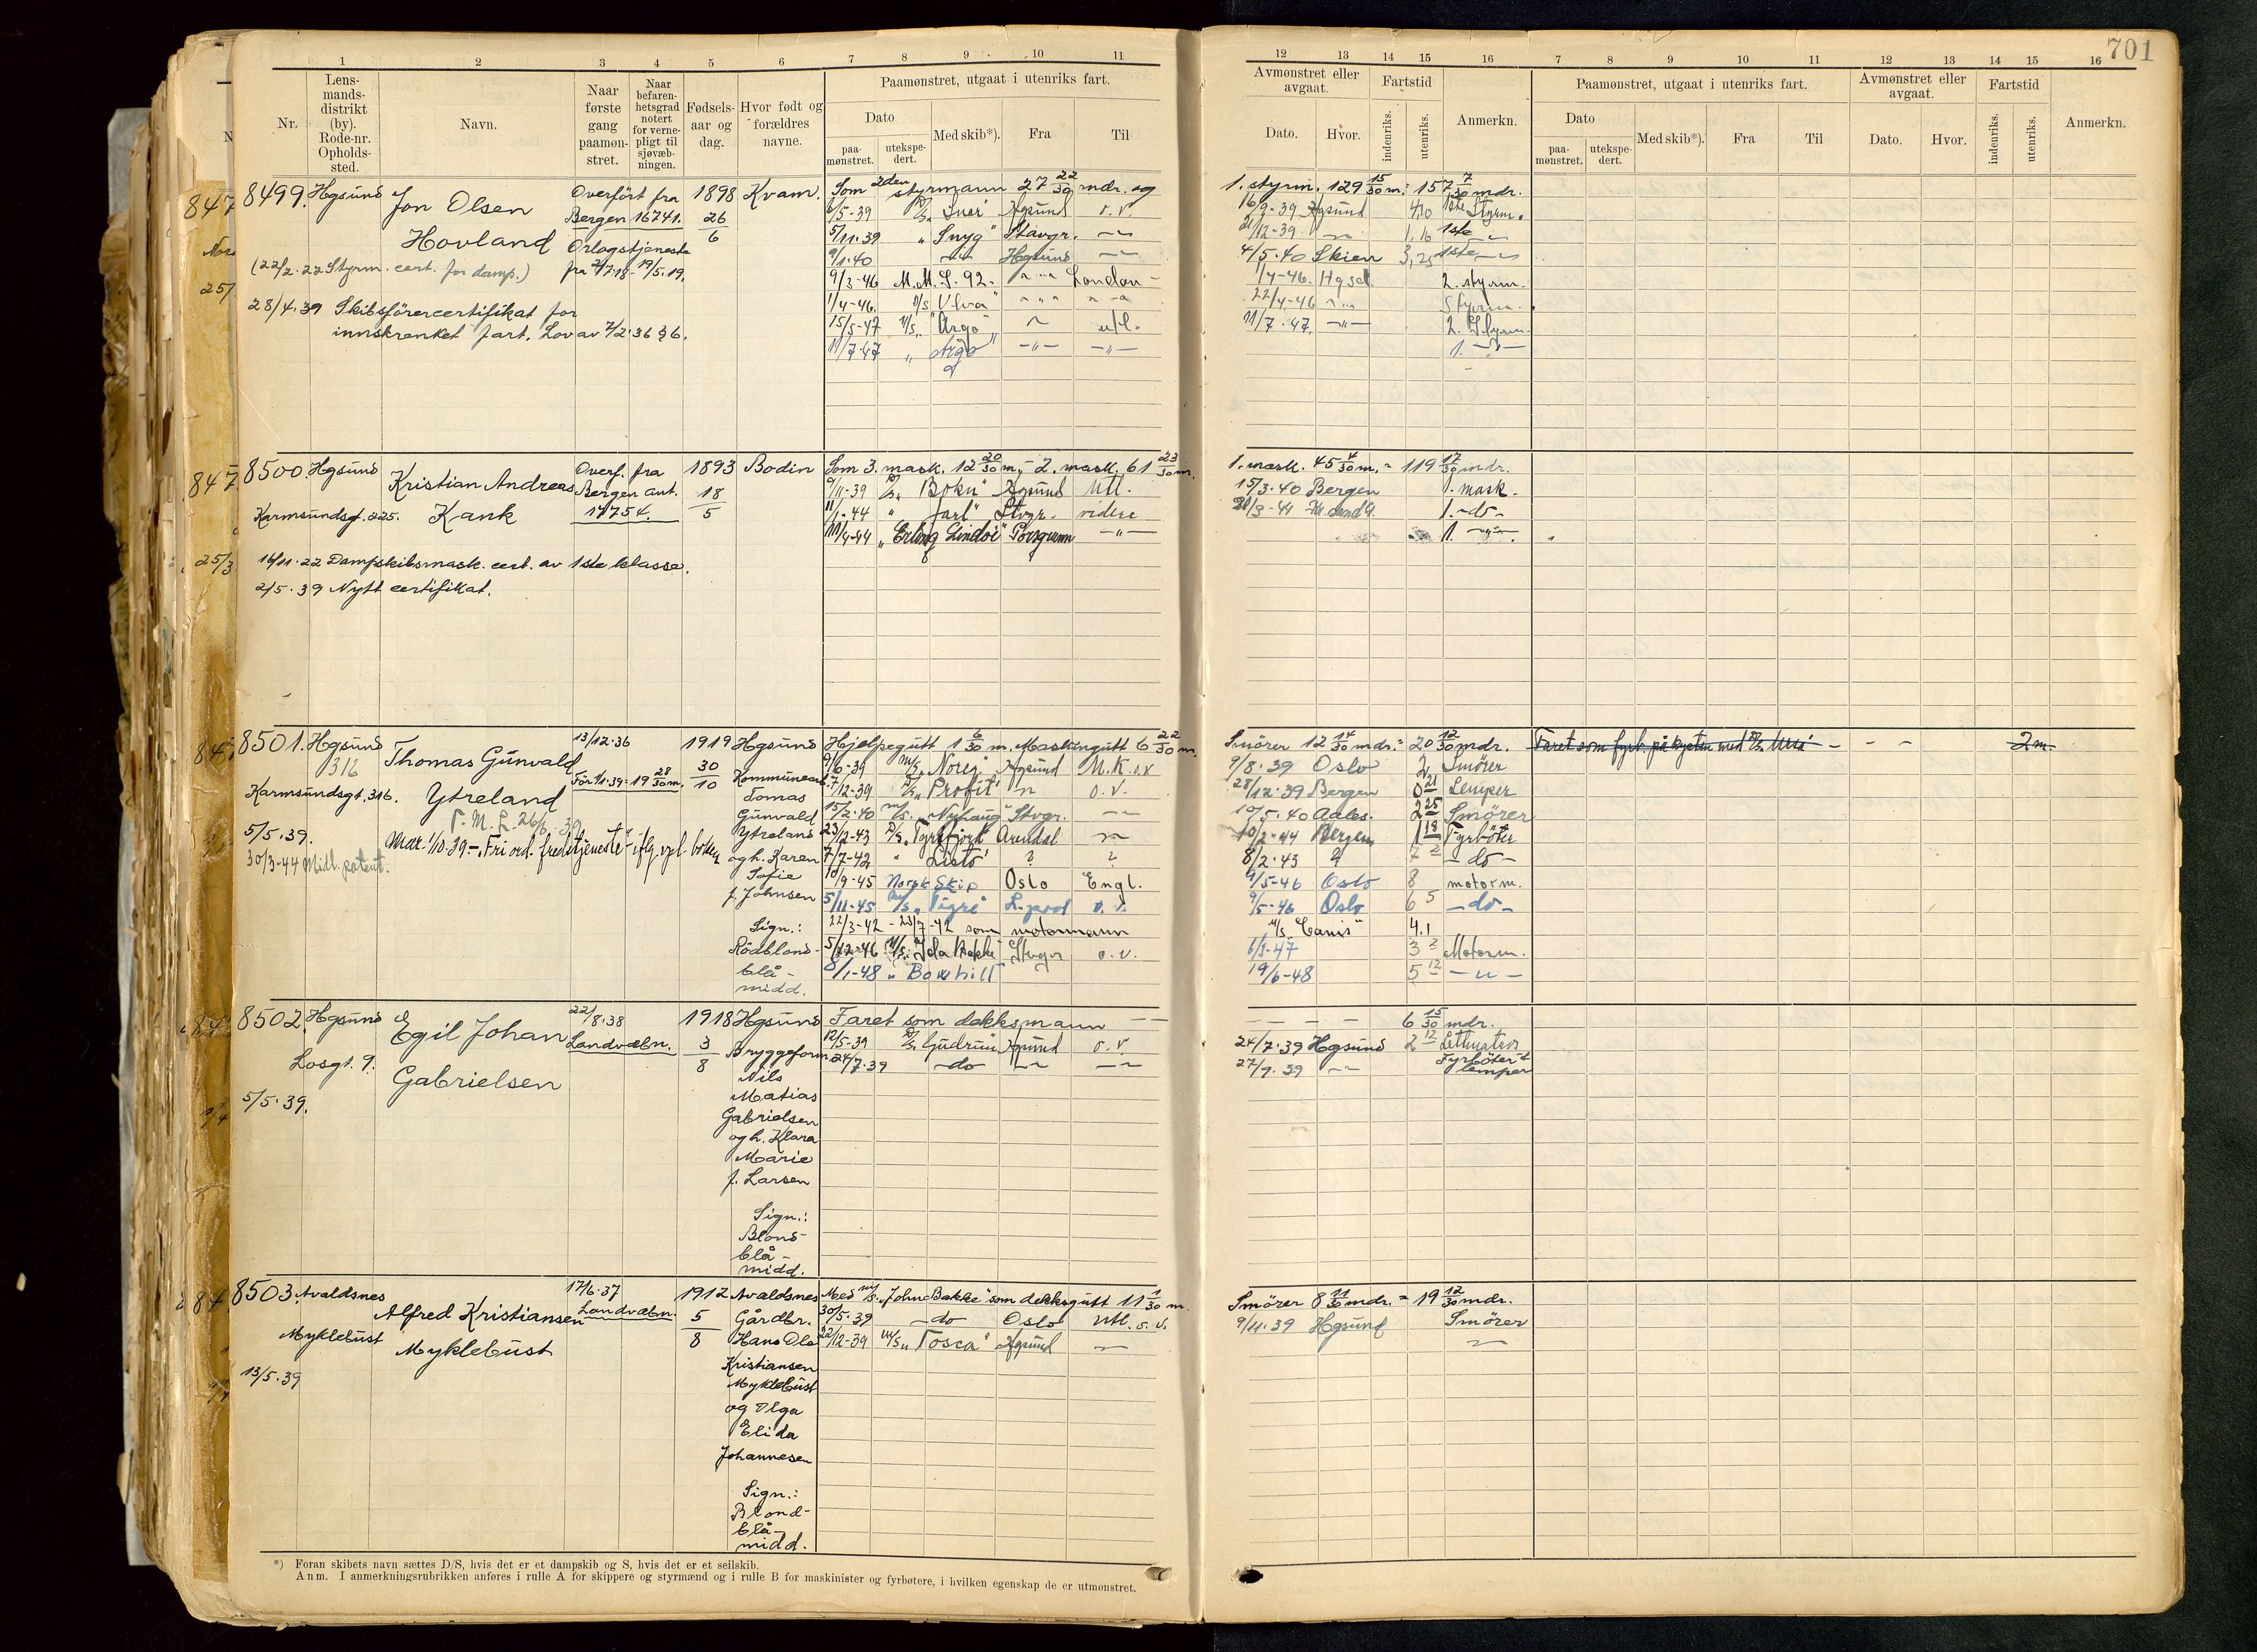 701
1 2 3 4 5 6 7 8 9 10 11 12 13 14 15 16 7 8 9 10 11 12 13 14 15 16
Nr.
Lens-
mands-
distrikt
(by).
Rode-nr.
Opholds-
sted.
Navn.
Naar
første
gang
paamøn-
stret.
Naar
befaren-
hetsgrad
notert
for verne-
pligt til
sjøvæb-
ningen.
Fødsels-
aar og
dag.
Hvor født og
forældres
navne.
Paamønstret, utgaat i utenriks fart.
Dato
paa-
mønstret.
utekspe-
dert.
Med skib*).
Fra
Til
Avmønstret eller
avgaat.
Dato.
Hvor.
Fartstid
indenriks.
utenriks.
Anmerkn.
Paamønstret, utgaat i utenriks fart.
Dato
paa-
mønstret.
utekspe-
dert.
Med skib*).
Fra
Til
Avmønstret eller
avgaat.
Dato.
Hvor.
Fartstid
indenriks.
utenriks.
Anmerkn.
8499. Hgsund
Jon Olsen
Hovland
(22/2.22 Styrm. cert. for damp.)
28/4.39 Skibsförercertifikat for
innskrenket fart. Lov av 7/2.36 § 6.
Overfört fra
Bergen 16741.
Orlogstjeneste
1898
26
6
Kvam.
Som 2den styrmann 27 22/30 mdr. og
1. styrm. 129 15/30 m. = 157 7/30 mdr.
Hgsund o.v. 16/9-39 Hgsund 4,10 1ste Styrm.
5/11.39 " Snyg" Stavgr. 1.16 1ste
9/1.40 Hgsund 4/5.40 Skien 3,25 1ste
9/3-46 M.M.S. 92. London 1/4-46. Hgsd. 2. styrm.
1/4-46. D/S "Ulva" 22/4-46 Styrm.
15/5-47 "Argo" utl. 11/7.47. 2. Styrm.
11/7-47 " Argo" 1.
8500. Hgsund
Kristian Andreas
Karmsundsgt. 225. Kank
16/11.22 Dampskibsmask. cert. av 1ste klasse.
2/5.39 Nytt certifikat.
Overf. fra
Bergen ant.
17754.
1893
18
5
Bodin
Som 3. mask. 12 20/30 m, - 2. mask. 61 23/30 m.
1. mask. 45 4/30 m. = 119 17/30 mdr.
9/11-39 D/S "Bokn" Hgsund Utl. 15/3.40 Bergen 1. mask.
" Jarl" Stvgr. videre 1. -do-
11/4-44 "Erling Lindöe" Porsgrunn 1.
8501. Hgsund
316
Thomas Gunvald
Karmsundsgt. 316. Ytreland
5/5.39.
30/3-44 Midl. patent.
13/12.36
För 1/1.39 = 19 28/30 m.
1919
30
10
Hgsund
Tomas
Gunvald
Ytreland
og h. Karen
Sofie
f. Johnsen
Sign.:
Rödblond-
blå-
midd.
Hjelpegutt 1 6/30 m. Maskingutt 6 22/30 m.
Smörer 12 14/30 mdr. = 20 12/30 mdr.
Faret som fyrb. på kysten med 2 m.
9/6-39 M/S "Noreg" Hgsund M.K. o.v 9/8.39 Oslo 2, Smörer
7/12-39 D/S "Profit" o.v. 28/12.39 Bergen 0 21 Lemper
15/2.40 M/S "Nyhaug" Stvgr. 10/5.40 Aales. 2 25 Smörer
23/2-43 D/S "Tyrifjord" Arendal 10/2-44 Bergen 1 18 Fyrböter
7/7-42 " Listo" ? ? 8/2.43 ? 7 2 -do-
10/9-45 Norsk Skip Oslo Engl. 9/5-46 Oslo 8 motorm.
5/11-45 M/S "Tigre" L.pool o.v. 9/5-46 Oslo 6 5 -do-
22/3-42 - 23/7-42 som motormann M/S "Canis" 4.1
5/12-46 M/S "Ida Bakke" Stvgr o.v. 6/3-47 3 2 Motorm.
8/1-48 " Bowhill" 19/6-48 5 12 -"-
8502. Hgsund
Egil Johan
Losgt. 9. Gabrielsen
5/5.39.
22/8.38
Landvæbn.
1918
3
8
Hgsund
Bryggeform.
Nils
Matias
Gabrielsen
og h. Klara
Marie
f. Larsen
Sign.:
Blond-
blå-
midd.
Faret som dekksmann
6 15/30 mdr.
12/5-39 D/S "Gudrun" Hgsund o.v. 24/7.39 Hgsund 2 12 Lettmatros
24/7.39 -do- 27/9.39 Fyrböter &
lemper
8503. Avaldsnes
Alfred Kristiansen
Myklebust Myklebust
13/5.39
17/6.37
Landvæbn.
1912
5
8
Avaldsnes
Gårdbr.
Hans Ola
Kristiansen
Myklebust
og Olga
Elida
Johannesen
Sign.:
Blond-
blå-
midd.
Med M/S "John Bakke" som dekksgutt 11 1/30 m.
Smörer 8 11/30 mdr. = 19 12/30 mdr.
30/5.39 -do- Oslo Utl. o.v. 9/11.39 Hgsund Smörer
22/12-39 M/S "Tosca" Hgsund
*) Foran skibets navn sættes D/S, hvis det er et dampskib og S, hvis det er et seilskib.
Anm. I anmerkningsrubrikken anføres i rulle A for skippere og styrmænd og i rulle B for maskinister og fyrbøtere, i hvilken egenskap de er utmønstret.